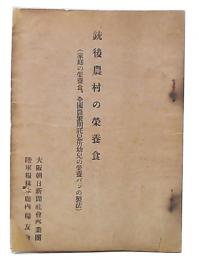 銃後農村の榮養食
(家庭の榮養食、各國農繁期託兒所幼兒の榮養パンの製法)
大阪朝日新聞社會事業團
陸軍糧秣本廠内糧友會